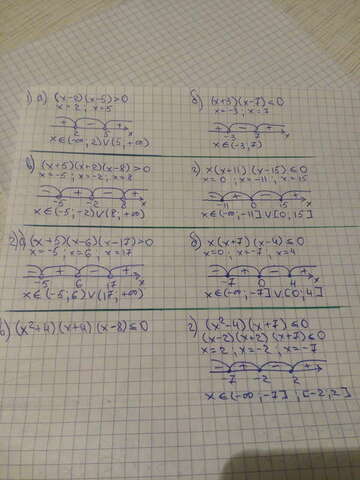 1) а) (x-2)(x-5)>0
x=2; x=5
+ - +
2 5 x
x∈(-∞, 2)∨(5; +∞)
б) (x+3)(x-7)<0
x=-3; x=7
+ - +
-3 7 x
x∈(-3; 7)
в) (x+5)(x+2)(x-8)>0
x=-5; x=-2; x=8
- + - +
-5 -2 8 x
x∈(-5; -2)∨(8; +∞)
г) x(x+11)(x-15)≤0
x=0; x=-11; x=15
- + - +
-11 0 15 x
x∈(-∞; -11]∨[0; 15]
2) а) (x+5)(x-6)(x-17)>0
x=-5; x=6; x=17
- + - +
-5 6 17 x
x∈(-5; 6)∨(17; +∞)
б) x(x+7)(x-4)≤0
x=0; x=-7; x=4
- + - +
-7 0 4 x
x∈(-∞; -7]∨[0; 4]
в) (x²+4)(x+4)(x-8)≤0
г) (x²-4)(x+7)≤0
(x-2)(x+2)(x+7)≤0
x=2; x=-2; x=-7
- + - +
-7 -2 2 x
x∈(-∞; -7]; [-2; 2]